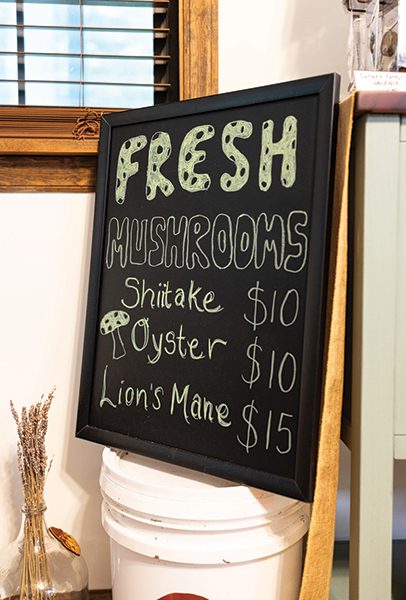 FRESH
MUSHROOMS
Shiitake $10
Oyster $10
Lion's Mane $15